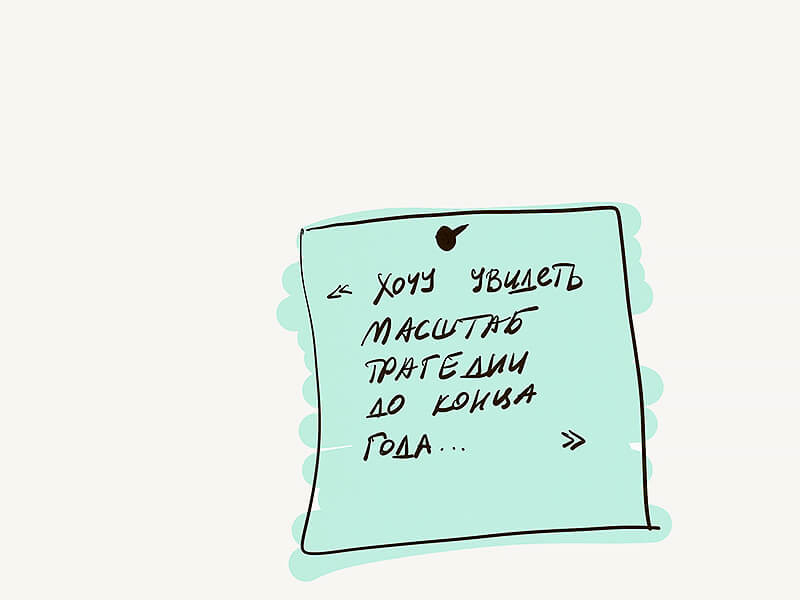 « Хочу увидеть
масштаб
трагедии
до конца
года... »